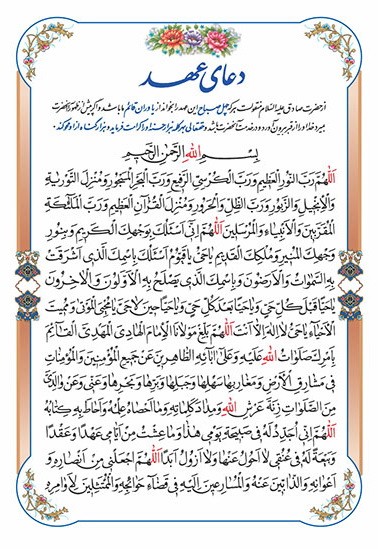 دعای عهد
از حضرت صادق علیه‌السلام منقولست هر که چهل صباح این عهد را بخواند از یاوران قائم ما باشد و اگر پیش از ظهور آنحضرت
بمیرد خدا او را از قبر بیرون آورد و در خدمت آنحضرت باشد و حقتعالی بهر کلمه هزار حسنه او را کرامت فرماید و هزار گناه از او محو کند.
بِسْمِ اللهِ الرَّحْمٰنِ الرَّحِيمِ
اَللّٰهُمَّ رَبَّ النُّورِ الْعَظِيمِ وَرَبَّ الْكُرْسِيِّ الرَّفِيعِ وَرَبَّ الْبَحْرِ الْمَسْجُورِ وَمُنْزِلَ التَّوْرٰيةِ
وَالْاِنْجِيلِ وَالزَّبُورِ وَرَبَّ الظِّلِّ وَالْحَرُورِ وَمُنْزِلَ الْقُرْآنِ الْعَظِيمِ وَرَبَّ الْمَلٰٓئِكَةِ
الْمُقَرَّبِينَ وَالْاَنْبِيٰٓاءِ وَالْمُرْسَلِينَ اَللّٰهُمَّ اِنّٖى اَسْئَلُكَ بِوَجْهِكَ الْكَرِيمِ وَبِنُورِ
وَجْهِكَ الْمُنِيرِ وَمُلْكِكَ الْقَدِيمِ يٰاحَيُّ يٰاقَيُّومُ اَسْئَلُكَ بِاسْمِكَ الَّذٖى اَشْرَقَتْ
بِهِ السَّمٰوٰاتُ وَالْاَرَضُونَ وَبِاسْمِكَ الَّذٖى يَصْلَحُ بِهِ الْاَوَّلُونَ وَالْاٰخِرُونَ
يٰاحَيّاً قَبْلَ كُلِّ حَيٍّ وَيٰاحَيّاً بَعْدَ كُلِّ حَيٍّ وَيٰاحَيّاً حِينَ لٰاحَيَّ يٰامُحْيِىَ الْمَوْتٰى وَمُمِيتَ
الْاَحْيٰٓاءِ يٰاحَيُّ لٰٓااِلٰهَ اِلّٰٓا اَنْتَ اَللّٰهُمَّ بَلِّغْ مَوْلٰانَا الْاِمٰامَ الْهٰادِىَ الْمَهْدِىَّ الْقٰٓائِمَ
بِاَمْرِكَ صَلَوٰاتُ اللهِ عَلَيْهِ وَعَلٰٓى اٰبٰٓائِهِ الطّٰاهِرِينَ عَنْ جَمِيعِ الْمُؤْمِنِينَ وَالْمُؤْمِنٰاتِ
فٖى مَشٰارِقِ الْاَرْضِ وَمَغٰارِبِهٰا سَهْلِهٰا وَجَبَلِهٰا وَبَرِّهٰا وَبَحْرِهٰا وَعَنّٖى وَعَنْ وٰالِدَيَّ
مِنَ الصَّلَوٰاتِ زِنَةَ عَرْشِ اللهِ وَمِدٰادَ كَلِمٰاتِهِ وَمٰٓا اَحْصٰاهُ عِلْمُهُ وَاَحٰاطَ بِهِ كِتٰابُهُ
اَللّٰهُمَّ اِنّٖٓى اُجَدِّدُ لَهُ فٖى صَبِيحَةِ يَوْمٖى هٰذٰا وَمٰا عِشْتُ مِنْ اَيّٰامٖى عَهْداً وَعَقْداً
وَبَيْعَةً لَهُ فٖى عُنُقٖى لٰٓا اَحُولُ عَنْهٰا وَلٰٓا اَزُولُ اَبَداً اَللّٰهُمَّ اجْعَلْنٖى مِنْ اَنْصٰارِهِ وَ
اَعْوٰانِهِ وَالذّٰابّٖينَ عَنْهُ وَالْمُسٰارِعِينَ اِلَيْهِ فٖى قَضٰٓاءِ حَوٰٓائِجِهِ وَالْمُمْتَثِلِينَ لِاَوٰامِرِهِ